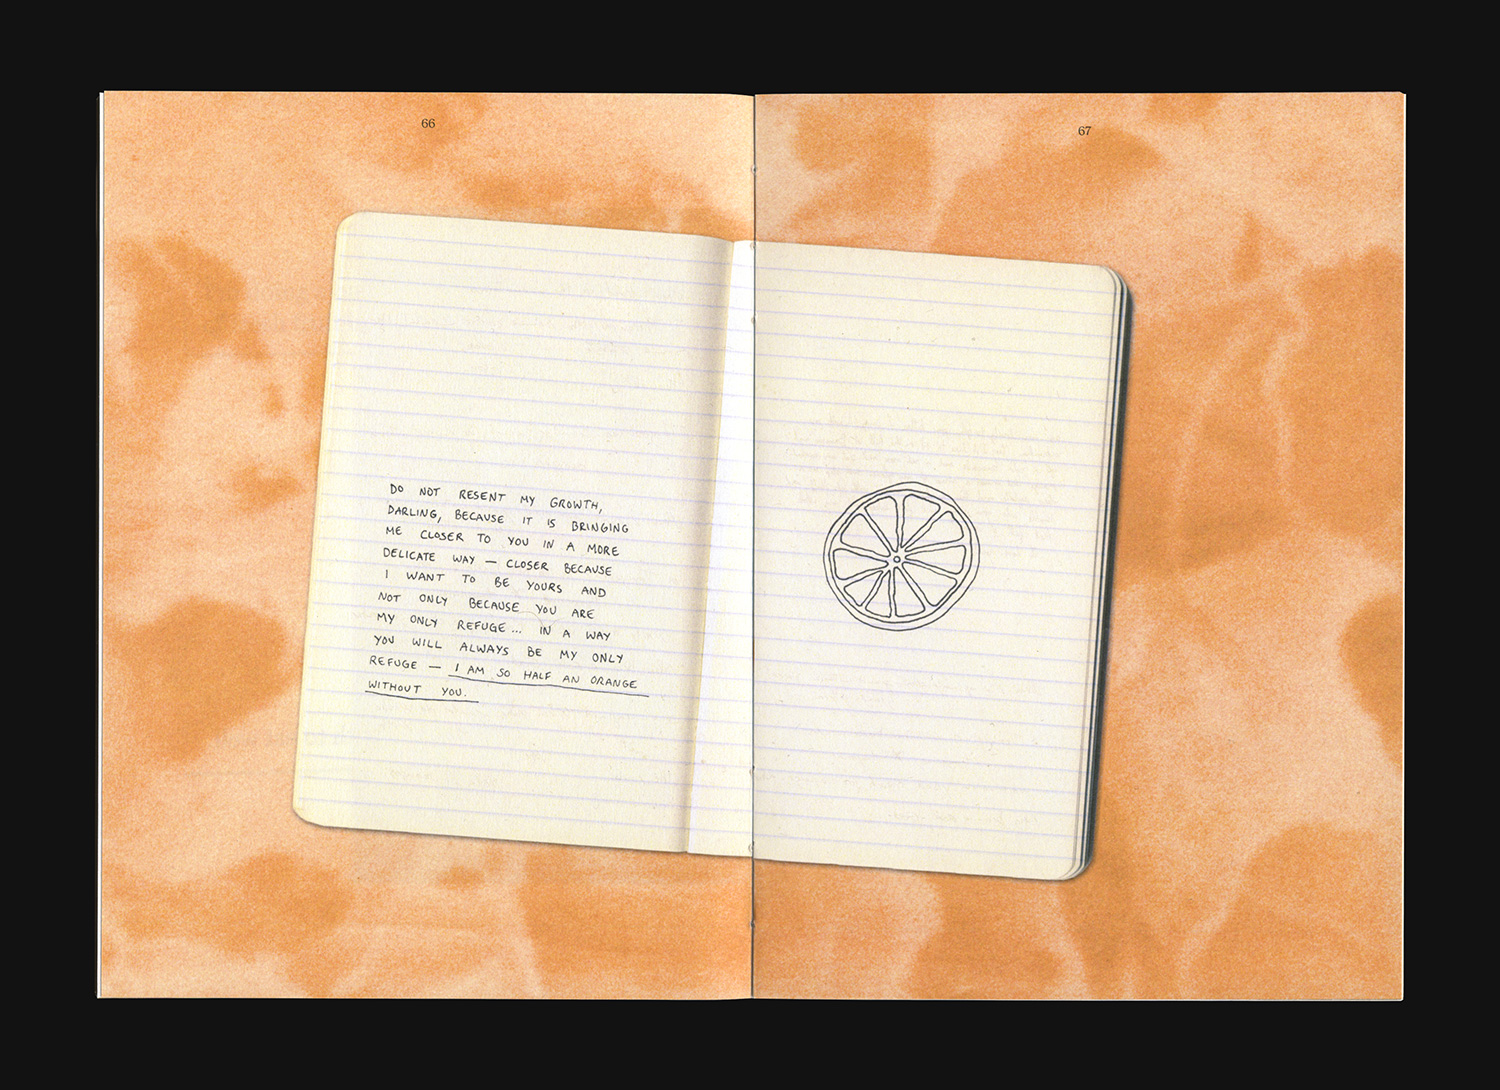 66
67
DO NOT RESENT MY GROWTH,
DARLING, BECAUSE IT IS BRINGING
ME CLOSER TO YOU IN A MORE
DELICATE WAY — CLOSER BECAUSE
I WANT TO BE YOURS AND
NOT ONLY BECAUSE YOU ARE
MY ONLY REFUGE... IN A WAY
YOU WILL ALWAYS BE MY ONLY
REFUGE — I AM SO HALF AN ORANGE
WITHOUT YOU.